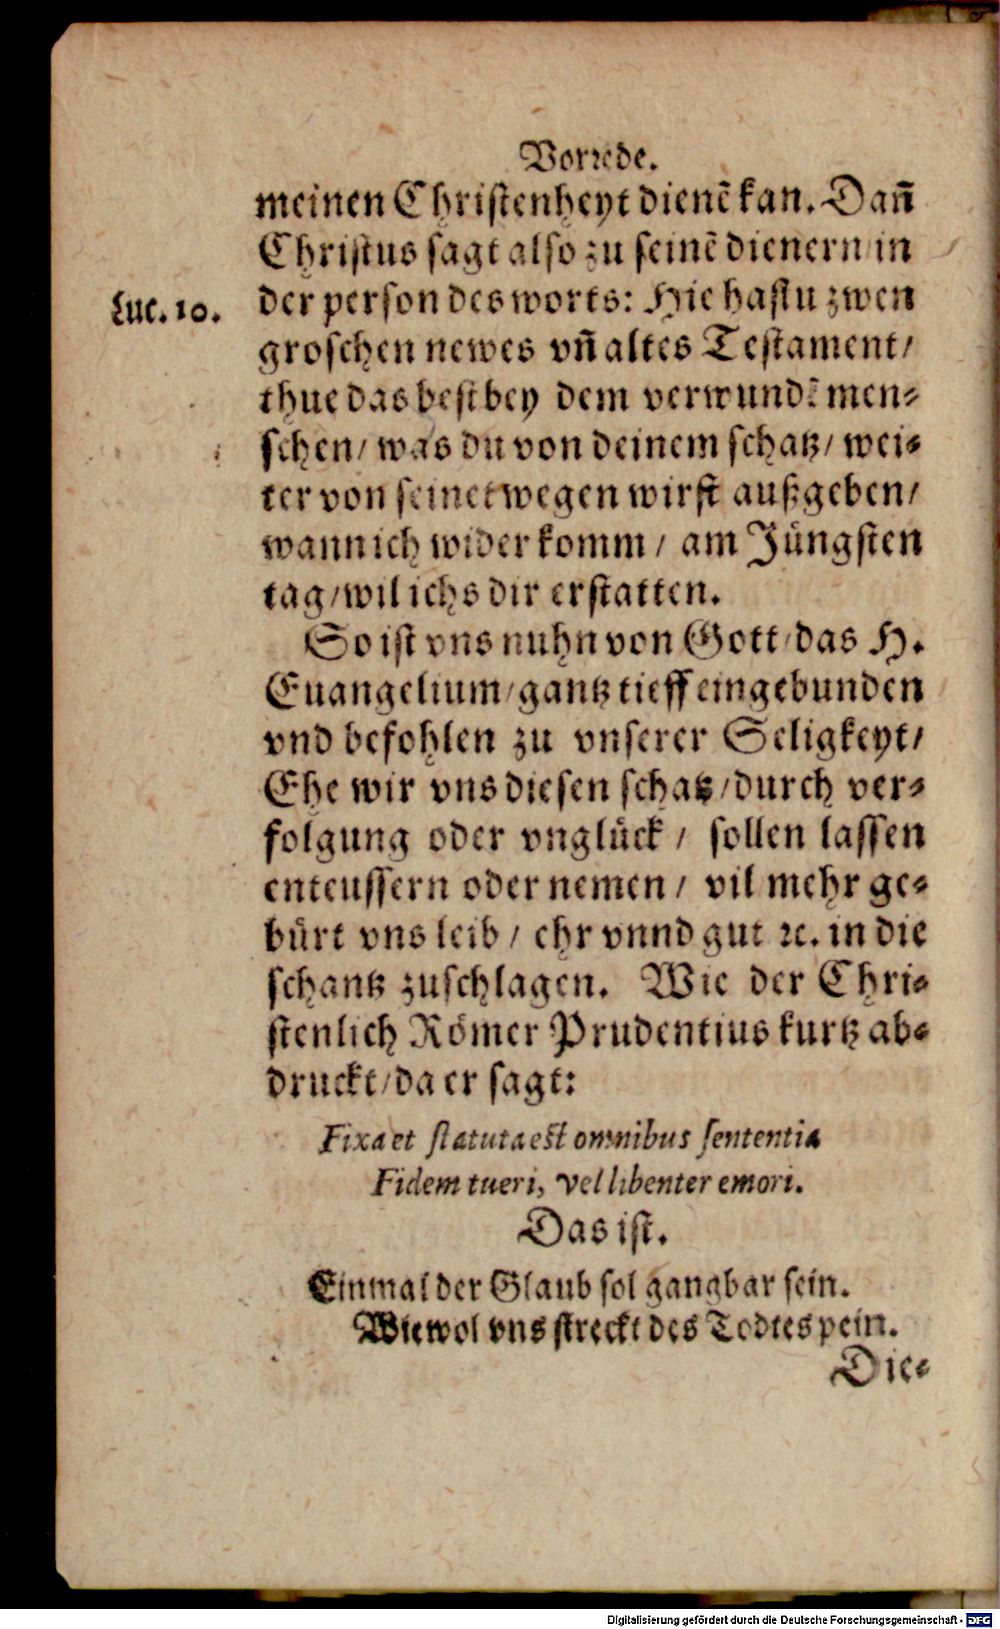 Vorrede.
meinen Christenheyt dienẽ kan. Dañ
Christus sagt also zu seinẽ dienern in
Luc. 10.
der person des worts: Hie hastu zwen
groschen newes vñ altes Testament/
thue das best bey dem verwundẽ men⸗
schen/ was du von deinem schatz/ wei⸗
ter von seinet wegen wirst außgeben/
wann ich wider komm/ am Jüngsten
tag/ wil ichs dir erstatten.
So ist vns nuhn von Gott das H.
Euangelium/ gantz tieff eingebunden
vnd befohlen zu vnserer Seligkeyt/
Ehe wir vns diesen schatz/ durch ver⸗
folgung oder vnglück/ sollen lassen
enteussern oder nemen/ vil mehr ge⸗
bürt vns leib/ ehr vnnd gut ꝛc. in die
schantz zuschlagen. Wie der Chri⸗
stenlich Römer Prudentius kurtz ab⸗
druckt/ da er sagt:
Fixa et statuta est omnibus sententia
Fidem tueri, vel libenter emori.
Das ist.
Einmal der Glaub sol gangbar sein.
Wiewol vns streckt des Todtes pein.
Die⸗
Digitalisierung gefördert durch die Deutsche Forschungsgemeinschaft - DFG